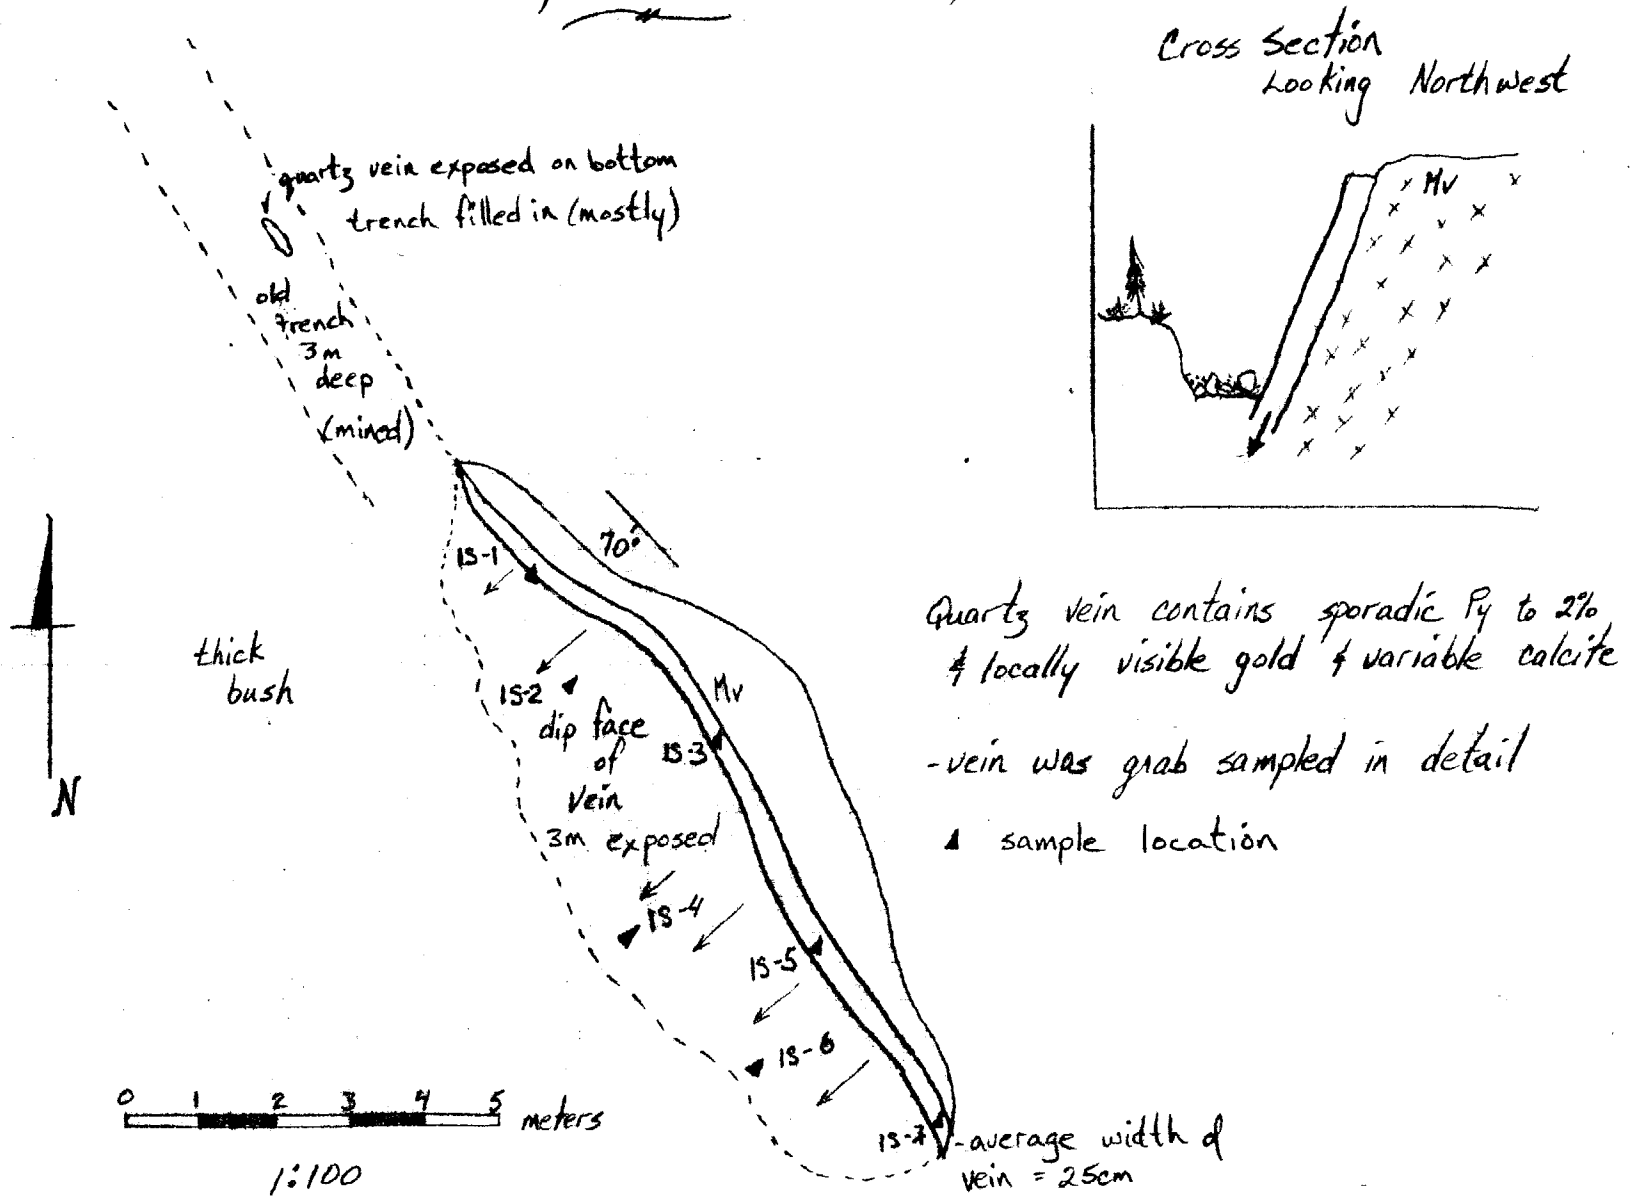 Cross Section
Looking Northwest
Mv
quartz vein exposed on bottom
trench filled in (mostly)
old
trench
3m
deep
(mined)
70°
IS-1
thick
bush
IS-2
Mv
dip face
of
vein
3m exposed
IS-3
IS-4
IS-5
IS-6
IS-7
N
Quartz vein contains sporadic Py to 2%
& locally visible gold & variable calcite
-vein was grab sampled in detail
sample location
0 1 2 3 4 5 meters
1:100
-average width of
vein = 25cm